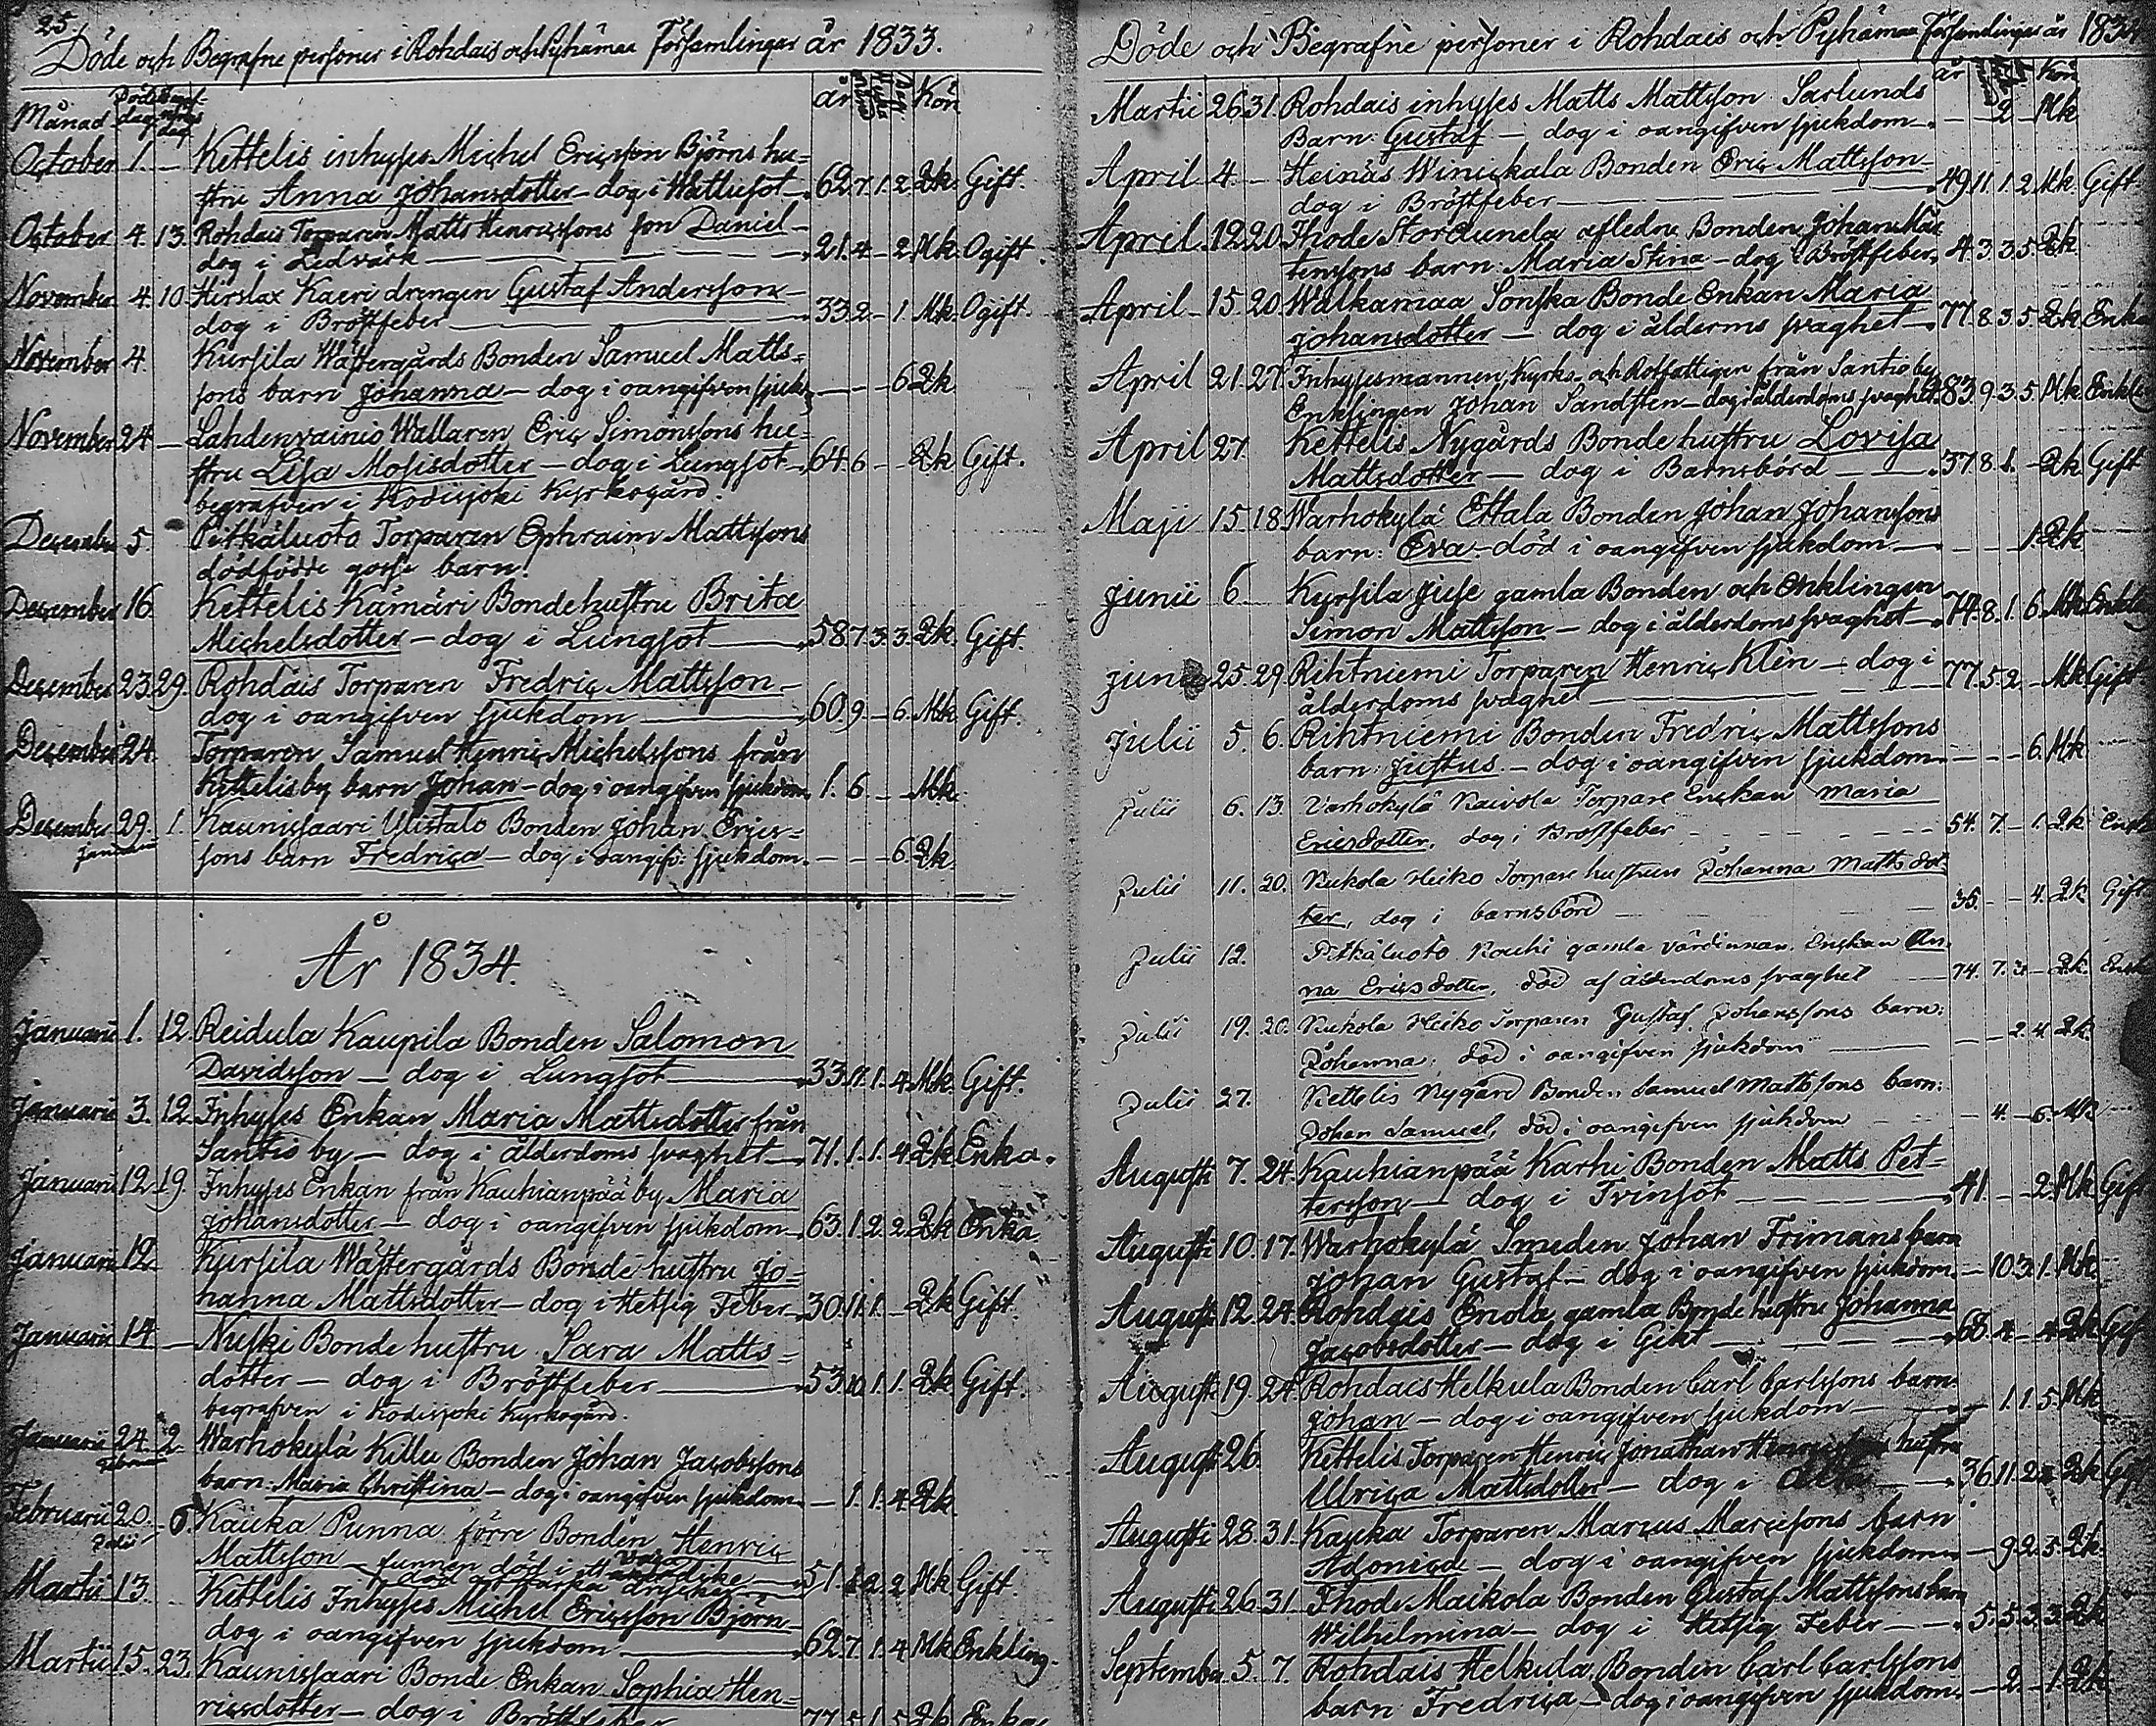 25.
Döde och Begrafne personer i Rohdais och Pyhämaa Församlingar år 1833.
Månad Döde dag Begrafnings dag år månad Dagar Kön
October 1. — Kettelis inhyses Michel Ericsson Björns hu=
stru Anna Johansdotter — dog i Wattusot — 62. 7. 1. 2. Qk. Gift.
October 4. 13. Rohdais Torparen Matts Henricssons son Daniel —
dog i Ledvärk — 21. 4 — 2. Mk. Ogift.
November 4. 10. Hirslax Kaeri drengen Gustaf Andersson —
dog i Bröstfeber — 33. 2 — 1. Mk. Ogift.
November 4. Kursila Wästergårds Bonden Samuel Matts=
sons barn Johanna — dog i oangifven sjukd — — — 6. Qk.
November 24 — Lahdenvainio Wallaren Eric Simonssons hu=
stru Lisa Mosisdotter — dog i Lungsot — 64. 6 — — Qk Gift.
begrafven i Hodisjoki Kyrkogård.
December 5 Pitkäluoto Torparen Ephraim Mattssons
dödfödde gosse barn.
December 16 Kettelis Kämäri Bondehustru Brita
Michelsdotter — dog i Lungsot — 58. 7. 3. 3. Qk. Gift.
December 23. 29. Rohdais Torparen Fredric Mattsson —
dog i oangifven sjukdom — 60. 9. — 6. Mk. Gift.
December 24. Torparen Samuel Henric Michelssons från
Kettelisby barn Johan — dog i oangifven sjukdom 1. 6. — — Mk.
December 29. 1. Kaunissaari Ylistalo Bonden Johan Erics=
Januarii sons barn Fredrica — dog i oangifv: sjukdom. — — — 6. Qk.
År 1834.
Januarii 1. 12. Reidula Kaupila Bonden Salomon
Davidsson — dog i Lungsot — 33. 11. 1. 4. Mk. Gift.
Januarii 3. 12. Inhyses Enkan Maria Mattsdotter från
Santio by — dog i ålderdoms svaghet — 71. 1. 1. 4. Qk Enka.
Januarii 12. 19. Inhyses Enkan från Kauhianpää by Maria
Johansdotter — dog i oangifven sjukdom — 63. 1. 2. 2. Qk Enka.
Januarii 12. Kursila Wästergårds Bonde hustru Jo=
hanna Mattsdotter — dog i Hetsig Feber — 30. 11. 1. — Qk Gift.
Januarii 14 — Nuski Bonde hustru Sara Matts=
dotter — dog i Bröstfeber — 53. 10. 1. 1. Qk Gift.
begrafven i Hodisjoki Kyrkogård.
Januarii 24. 2. Warhokylä Killu Bonden Johan Jacobssons
Februarii barn: Maria Christina — dog i oangifven sjukdom. — 1. 1. 4. Qk.
Februarii 20. 6. Kauka Punna förre Bonden Henric
Julii Mattsson — funnen död i ett — 51. 2. 2. Mk Gift.
död af starka drycker
Martii 13. Kettelis Inhyses Michel Ericsson Björn —
dog i oangifven sjukdom — 62. 7. 1. 4 Mk Enkling.
Martii 15. 23. Kaunissaari Bonde Enkan Sophia Hen=
ricsdotter — dog i Bröstfeber — 77. 5. 1. 5. Qk Enka.
Döde och Begrafne personer i Rohdais och Pyhämaa Församlingar år 1834
år Kön
Martii 26. 31. Rohdais inhyses Matts Mattsson Sarlunds
Barn: Gustaf — dog i oangifven sjukdom — — — 2 — Mk
April 4 — Heinäs Winickala Bonden Eric Mattsson —
dog i Bröstfeber — 49. 11. 1. 2. Mk Gift
April 12. 20. Ihode Stordunela afledne Bonden Johan Mår=
tenssons barn: Maria Stina — dog i Bröstfeber. 4. 3. 3. 5. Qk.
April 15. 20. Walkamaa Sonska Bonde Enkan Maria
Johansdotter — dog i ålderms svaghet — 77. 8. 3. 5. Qk Enka
April 21. 27. Inhysesmannen, Kyrko- och Rotfattigen från Santio by
Enklingen Johan Sandsten — dog i ålderdoms svaghet. 83. 9. 3. 5. Mk Enkling
April 27. Kettelis Nygårds Bonde hustru Lovisa
Mattsdotter — dog i Barnsbörd — 37. 8. 1. — Qk Gift
Maji 15. 18. Warhokylä Ettala Bonden Johan Johanssons
barn: Eva — död i oangifven sjukdom — — — — 1. Qk
Junii 6. Kursila Juse gamla Bonden och Enklingen
Simon Mattsson — dog i ålderdoms svaghet — 74. 8. 1. 6. Mk Enkling
Junii 25. 29. Rihtniemi Torparen Henric Klèn — dog i
ålderdoms svaghet — 77. 5. 2. — Mk Gift
Julii 5. 6. Rihtniemi Bonden Fredric Mattssons
barn: Justus — dog i oangifven sjukdom — — — — 6. Mk
Julii 6. 13. Varhokylä Raivola Torpare Enckan Maria
Ericsdotter, dog i Bröstfeber — 54. 7. — 1. Qk Enka
Julii 11. 20. Kukola Heiko Torpare hustrun Johanna Mattsdot=
ter, dog i barnsbörd — 35. — — 4. Qk Gift
Julii 12. Pitkäluoto Kouhi gamla värdinnan Enckan An=
na Ericsdotter, död af ålderdoms svaghet — 74. 7. 3 — Qk. Enka
Julii 19. 20. Kukola Heiko Torparen Gustaf Johanssons barn:
Johanna, död i oangifven sjukdom — — — 2. 4 Qk.
Julii 27. Kettelis Nygård Bonden Samuel Mattssons barn:
Johan Samuel, död i oangifven sjukdom — 4. — 6. Mk
Augusti 7. 24. Kauhianpää Karhi Bonden Matts Pet=
tersson — dog i Tvinsot — 41. — — 2. Mk Gift
Augusti 10. 17. Warhokylä Smeden Johan Frimans barn
Johan Gustaf — dog i oangifven sjukdom. — 10. 3. 1. Mk.
Augusti 12. 24. Rohdais Enola gamla Bonde hustru Johanna
Jacobsdotter — dog i Gikt — 68. 4 — 4 Qk Gift
Augusti 19. 24. Rohdais Helkula Bonden Carl Carlssons barn:
Johan — dog i oangifven sjukdom — 1. 1. 5. Mk
Augusti 26. Kettelis Torparen Henric Jonathan hustru
Ulrica Mattsdotter — dog i — 36. 11. 2. Qk Gift
Augusti 28. 31. Kauka Torparen Marcus Marcussons barn
— dog i oangifven sjukdom — 9. 2. 5. Qk.
Augusti 26. 31. Ihode Maikola Bonden Gustaf Mattssons barn
Wilhelmina — dog i Hetsig Feber — 5. 5. 3. 3. Qk
September 5. 7. Rohdais Helkula Bonden Carl Carlssons
barn Fredrica — dog i oangifven sjukdom. — 2. — 1. Qk